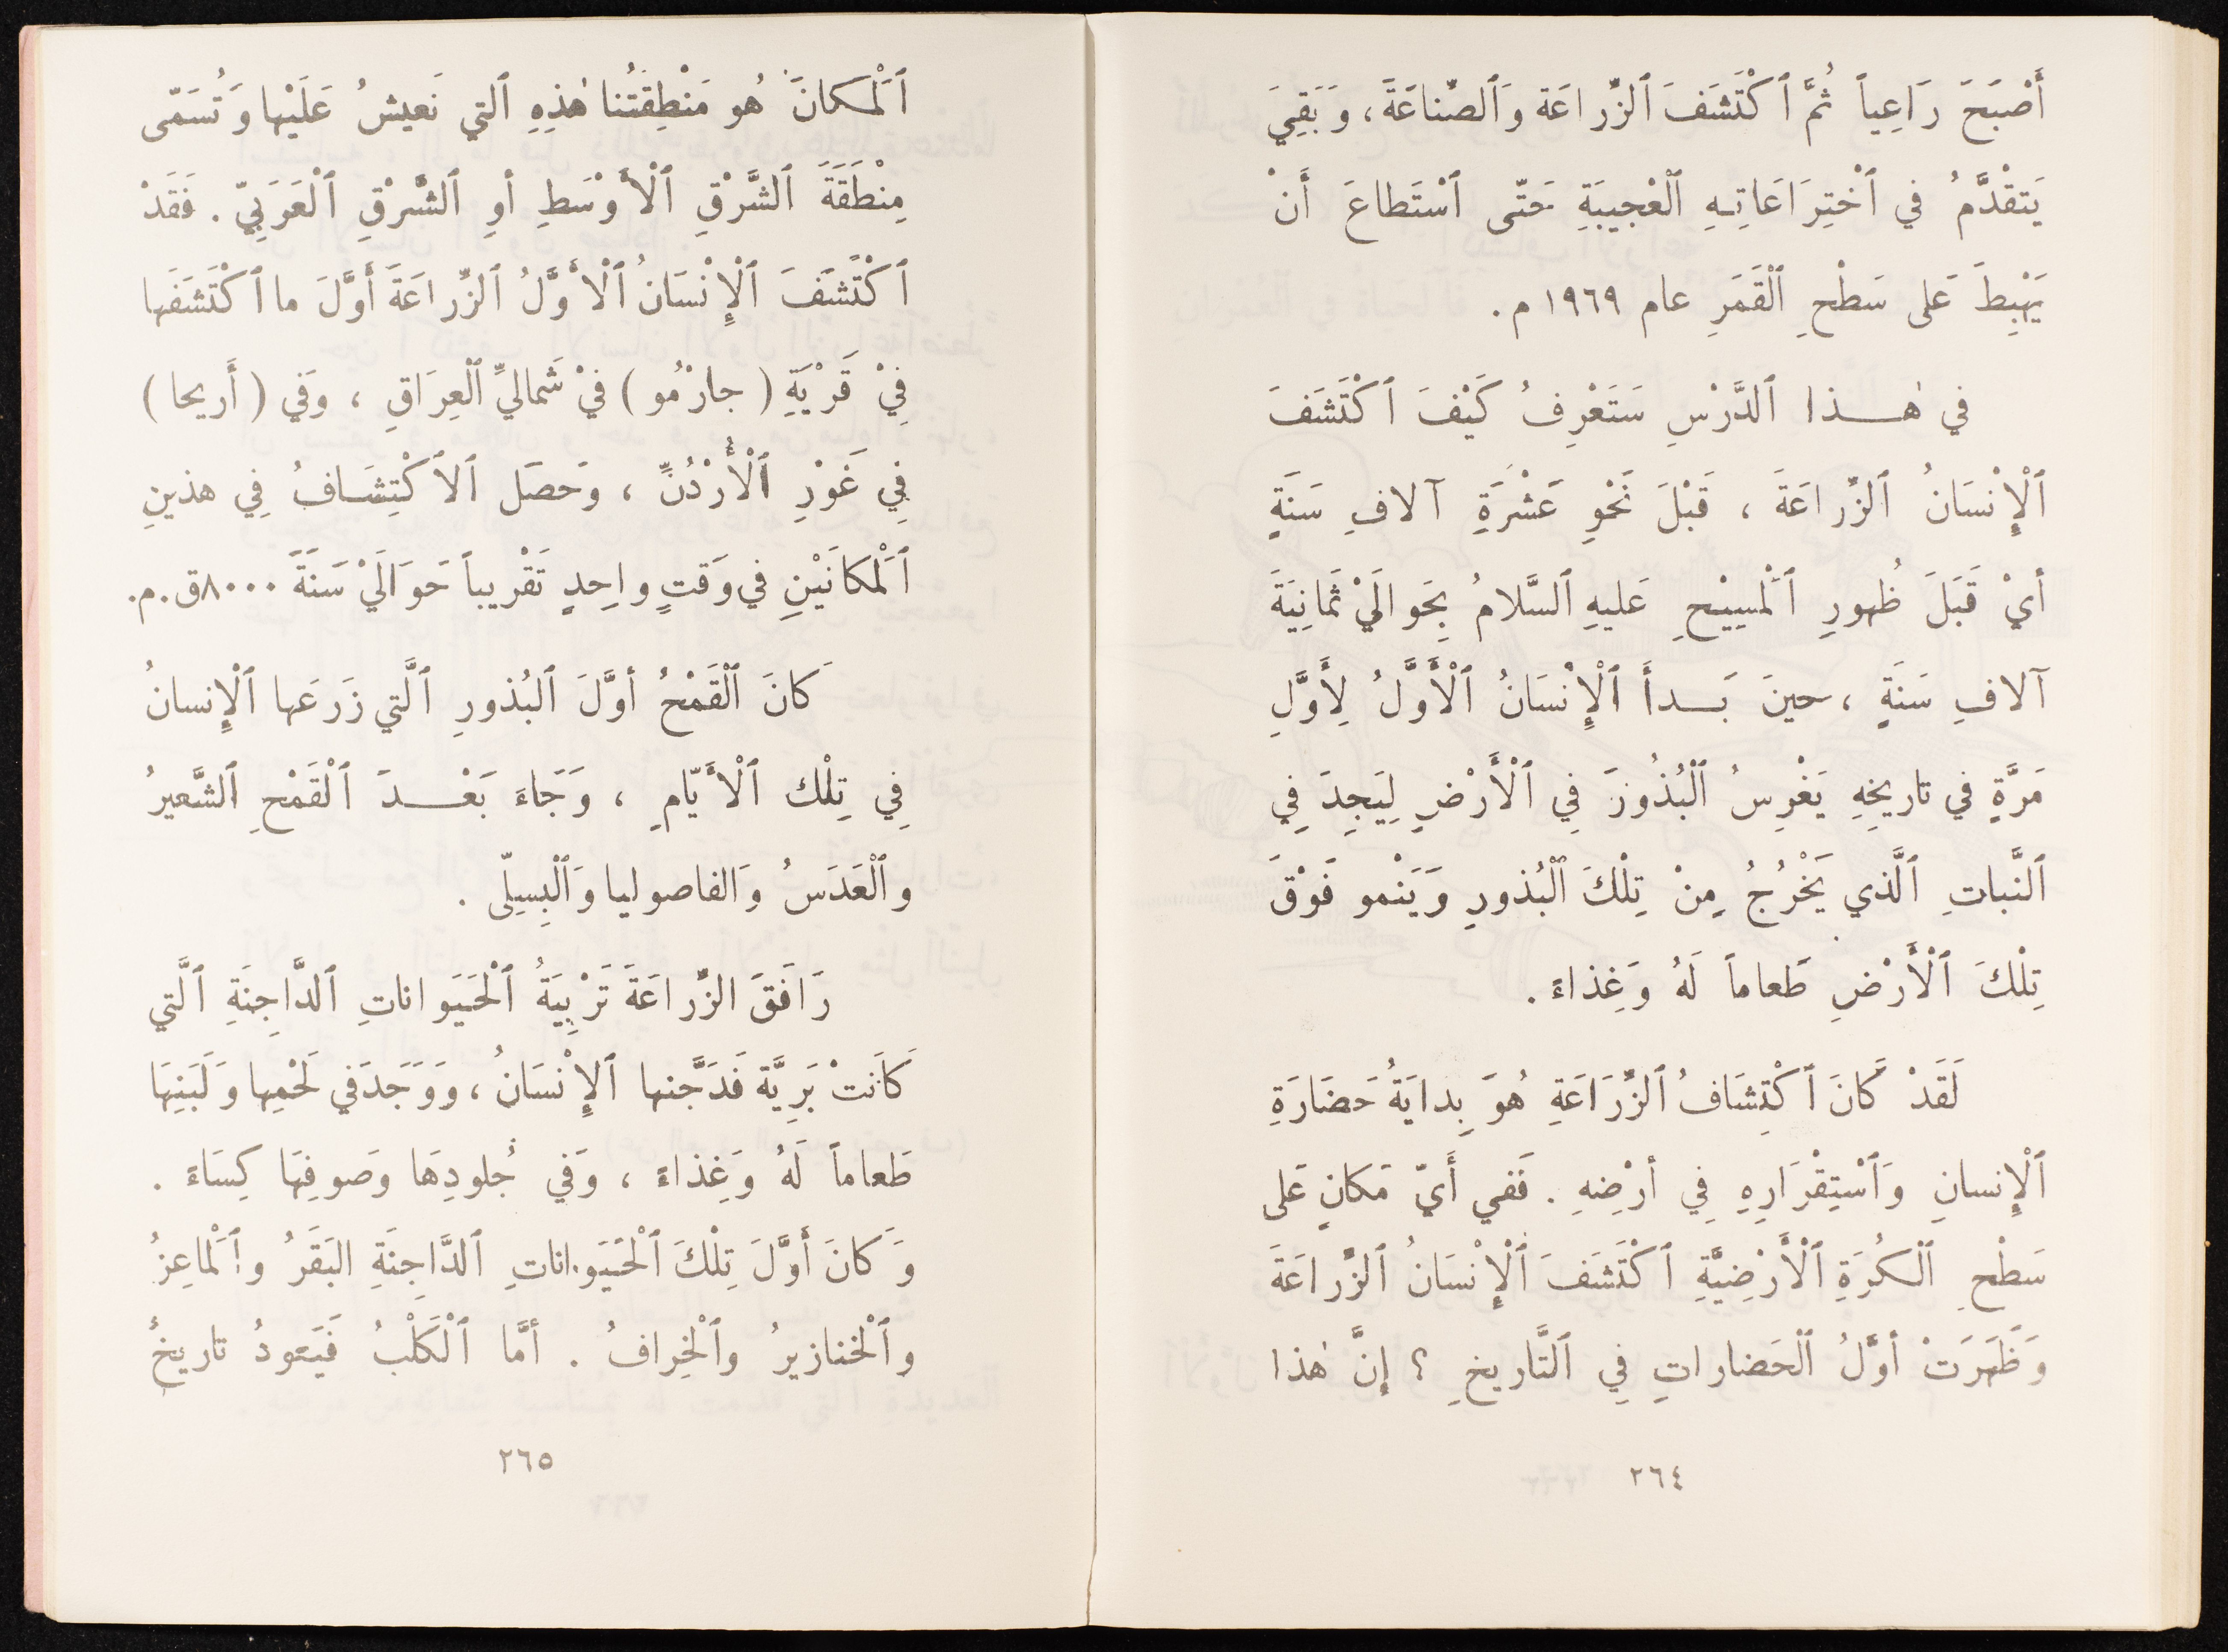 أَصْبَحَ رَاعِياً ثُمَّ ٱكْتَشَفَ ٱلزِّراعَة وَٱلصِّناعَةَ، وَبَقِيَ
يَتَقْدَّمُ في ٱخْتِرَاعَاتِهِ ٱلْعْجيبَةِ حَتّى ٱسْتَطاعَ أَنْ
يَهْبِطَ عَلى سَطْحِ ٱلْقَمَرِ عام ١٩٦٩ م.
في هٰذا ٱلدَّرْسِ سَتَعْرِفُ كَيْفَ ٱكْتَشَفَ
ٱلْإِنْسَانُ ٱلزِّراعَةَ ، قَبْلَ نَحْوِ عَشْرَةِ آلافِ سَنَةٍ
أيْ قَبَلَ ظُهورِ ٱلْمَسِيْحِ عَليهِ ٱلسَّلامُ بِحَوالَيْ ثَمانِيَةَ
آلافِ سَنَةٍ ، حينَ بَدأَ ٱلْإِنْسَانُ ٱلْأَوَّلُ لِأَوَّلِ
مَرَّةٍ في تاريخِهِ يَغْرِسُ ٱلْبُذُورَ فِي ٱلْأَرْضِ لِيَجِدَ فِي
ٱلنَّباتِ ٱلَّذي يَخْرُجُ مِنْ تِلْكَ ٱلْبُذورِ وَيَنْمو فَوْقَ
تِلْكَ ٱلْأَرْضِ طَعاماً لَهُ وَغِذاءً .
لَقَدْ كَانَ ٱكْتِشَافُ ٱلزِّرَاعَةِ هُوَ بِدايَةُ حَضَارَةِ
ٱلْإِنسانِ وَٱسْتِقْرَارِهِ فِي أرْضِهِ . فَفي أَيّ مَكانٍ عَلى
سَطْحِ ٱلْكُرَةِ ٱلْأَرْضِيَّةِ ٱكْتَشَفَ ٱلْإِنْسَانُ ٱلزِّراعَةَ
وَظَهَرَتْ أوَّلُ ٱلْحَضاراتِ فِي ٱلتَّاريخِ ؟ إنَّ هٰذا
٢٦٤
ٱلْمَكانَ هُو مَنْطِقَتُنا هٰذِهِ ٱلتي نَعيشُ عَلَيْها وَتُسَمّى
مِنْطَقَةَ ٱلشَّرْقِ ٱلْأَوْسَطِ أوِ ٱلشَّرْقِ ٱلْعَرَبِيّ . فَقَدْ
ٱكْتَشَفَ ٱلْإِنْسَانُ ٱلْأَوَّلُ ٱلزِّراعَةَ أَوَّلَ ما ٱكْتَشَفَها
فِيْ قَرْيَةِ ( جارْمُو ) فيْ شَماليِّ ٱلْعِرَاقِ ، وَفي ( أَريحا )
فِي غَوْرِ ٱلْأُرْدُنِّ ، وحَصَل ٱلاٱكْتِشَافُ فِي هذينِ
ٱلْمَكانَيْنِ في وَقتٍ واحِدٍ تَقْريباً حَوَالَيْ سَنَةَ ٨٠٠٠ق.م.
كانَ ٱلْقَمْحُ أوَّلَ ٱلبُذورِ ٱلَّتي زَرَعَها ٱلْإِنسانُ
فِي تِلْك ٱلْأَيّامِ ، وَجَاءَ بَعْدَ ٱلْقَمْحِ ٱلشَّعيرُ
وٱلْعَدَسُ وَالفاصوليا وَٱلْبِسِلّى .
رَافَقَ الزِّراعَةَ تَرْبِيَةُ ٱلْحَيَواناتِ ٱلدَّاجِنَةِ ٱلَّتي
كَانَتْ بَرِيَّة فَدَجَّنها ٱلإِنْسَانُ ، وَوَجَدَفي لَحْمِها وَلَبَنِهَا
طَعاماً لَهُ وَغِذاءً ، وَفي جُلودِهَا وَصوفِهَا كِسَاءً .
وَكانَ أَوَّلَ تِلْكَ ٱلْحَيَواناتِ ٱلدَّاجِنَةِ البَقَرُ وٱلْماعِزُ
وٱلْخنازيرُ وٱلْخِرافُ . أمَّا ٱلْكَلْبُ فَيَعودُ تاريخُ
٢٦٥